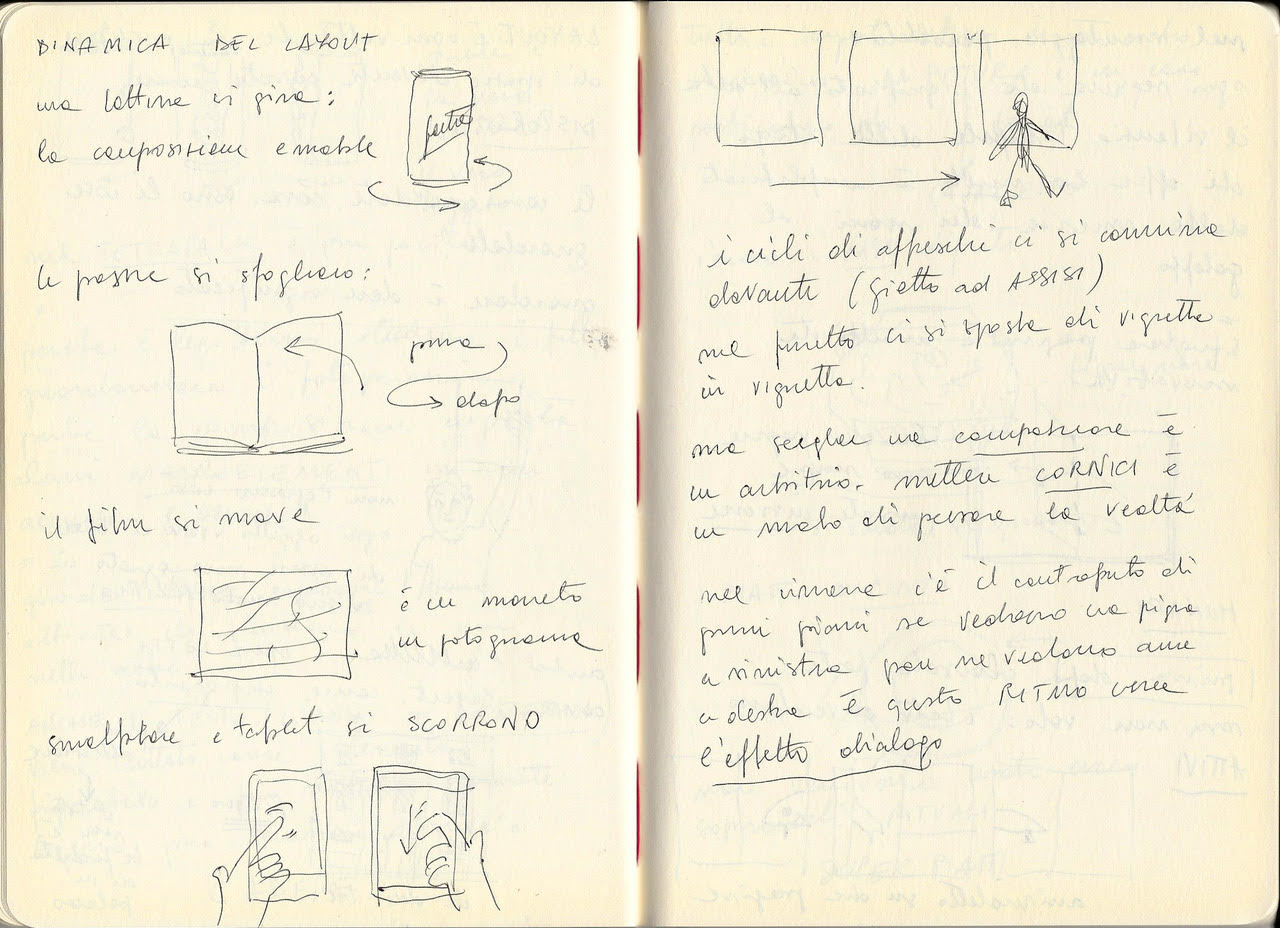 DINAMICA DEL LAYOUT
una lattina si gira:
la composizione è mobile
le pagine si sfogliano:
prima
dopo
il film si move
è un moneto
un fotogramma
smartphone e tablet si SCORRONO
i cicli di affreschi ci si cammina
davanti (Giotto ad ASSISI)
nel fumetto ci si sposta di vignetta
in vignetta.
ma scegliere una composizione è
un arbitrio. mettere CORNICI è
un modo di pensare la realtà
nel cinema c'è il contrapunto di
primi piani se vediamo una figura
a sinistra poi ne vediamo una
a destra è questo RITMO crea
l'effetto dialogo